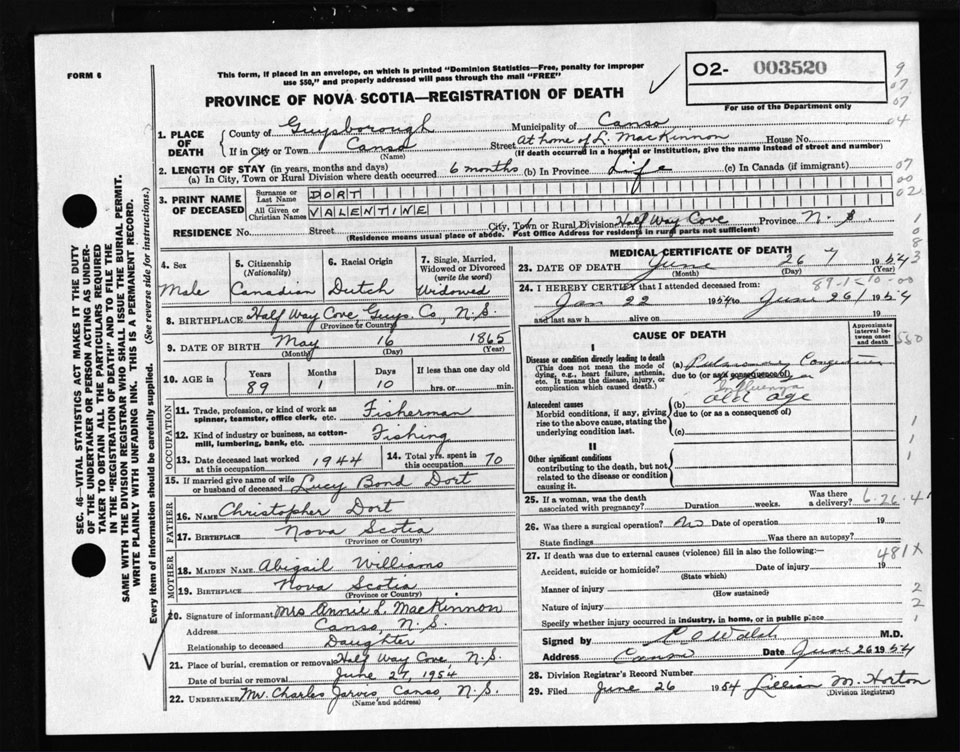 FORM 6
This form, if placed in an envelope, on which is printed "Dominion Statistics—Free, penalty for improper
use $50," and properly addressed will pass through the mail "FREE"
PROVINCE OF NOVA SCOTIA—REGISTRATION OF DEATH
02- 003520
For use of the Department only
9
07
07
04
1. PLACE OF DEATH
County of Guysborough Municipality of Canso
If in City or Town Canso (Name) Street At home of L. MacKinnon House No.
(If death occurred in a hospital or institution, give the name instead of street and number)
2. LENGTH OF STAY (in years, months and days)
(a) In City, Town or Rural Division where death occurred 6 months (b) In Province Life (c) In Canada (if immigrant)
07
00
02
3. PRINT NAME OF DECEASED
Surname or Last Name DORT
All Given or Christian Names VALENTINE
RESIDENCE No. Street City, Town or Rural Division Half Way Cove Province N.S.
(Residence means usual place of abode. Post Office Address for residents in rural parts not sufficient)
1
0
8
3
SEC. 46—VITAL STATISTICS ACT MAKES IT THE DUTY
OF THE UNDERTAKER OR PERSON ACTING AS UNDER-
TAKER TO OBTAIN ALL THE PARTICULARS REQUIRED
IN THE "REGISTRATION OF DEATH" AND TO FILE THE
SAME WITH THE DIVISION REGISTRAR WHO SHALL ISSUE THE BURIAL PERMIT.
WRITE PLAINLY WITH UNFADING INK. THIS IS A PERMANENT RECORD.
Every item of Information should be carefully supplied. (See reverse side for instructions.)
4. Sex Male
5. Citizenship (Nationality) Canadian
6. Racial Origin Dutch
7. Single, Married, Widowed or Divorced (write the word) Widowed
8. BIRTHPLACE Half Way Cove Guys. Co, N.S.
(Province or Country)
9. DATE OF BIRTH May 16 1865
(Month) (Day) (Year)
10. AGE in Years 89 Months 1 Days 10 If less than one day old
hrs. or min.
OCCUPATION
11. Trade, profession, or kind of work as spinner, teamster, office clerk, etc. Fisherman
12. Kind of industry or business, as cotton-mill, lumbering, bank, etc. Fishing
13. Date deceased last worked at this occupation 1944 14. Total yrs. spent in this occupation 70
15. If married give name of wife or husband of deceased Lucy Bond Dort
FATHER
16. NAME Christopher Dort
17. BIRTHPLACE Nova Scotia
(Province or Country)
MOTHER
18. MAIDEN NAME Abigail Williams
19. BIRTHPLACE Nova Scotia
(Province or Country)
20. Signature of informant Mrs Annie L. MacKinnon
Address Canso, N.S.
Relationship to deceased Daughter
21. Place of burial, cremation or removal Half Way Cove, N.S.
Date of burial or removal June 27, 1954
22. UNDERTAKER Mr. Charles Jarvis, Canso, N.S.
(Name and address)
MEDICAL CERTIFICATE OF DEATH
23. DATE OF DEATH June 26 7 1954
(Month) (Day) (Year)
89-1-10-00
24. I HEREBY CERTIFY that I attended deceased from:
Jan 22 1954 to June 26 1954
and last saw h alive on
CAUSE OF DEATH
Approximate interval between onset and death
550
I
Disease or condition directly leading to death
(This does not mean the mode of dying, e.g., heart failure, asthenia, etc. It means the disease, injury, or complication which caused death.)
(a) Pulmonary Congestion
due to (or as a consequence of)
Influenza
Antecedent causes
Morbid conditions, if any, giving rise to the above cause, stating the underlying condition last.
(b) old age
due to (or as a consequence of)
(c)
1
1
II
Other significant conditions
contributing to the death, but not related to the disease or condition causing it.
25. If a woman, was the death associated with pregnancy? Duration weeks. Was there a delivery? 6-26-4
26. Was there a surgical operation? No Date of operation 19
State findings Was there an autopsy?
27. If death was due to external causes (violence) fill in also the following: 481X
Accident, suicide or homicide? (State which) Date of injury 19
Manner of injury (How sustained) 2
Nature of injury 2
Specify whether injury occurred in industry, in home, or in public place 1
Signed by Walsh M.D.
Address Canso Date June 26 1954
28. Division Registrar's Record Number
29. Filed June 26 1954 Lillian M. Horton
(Division Registrar)